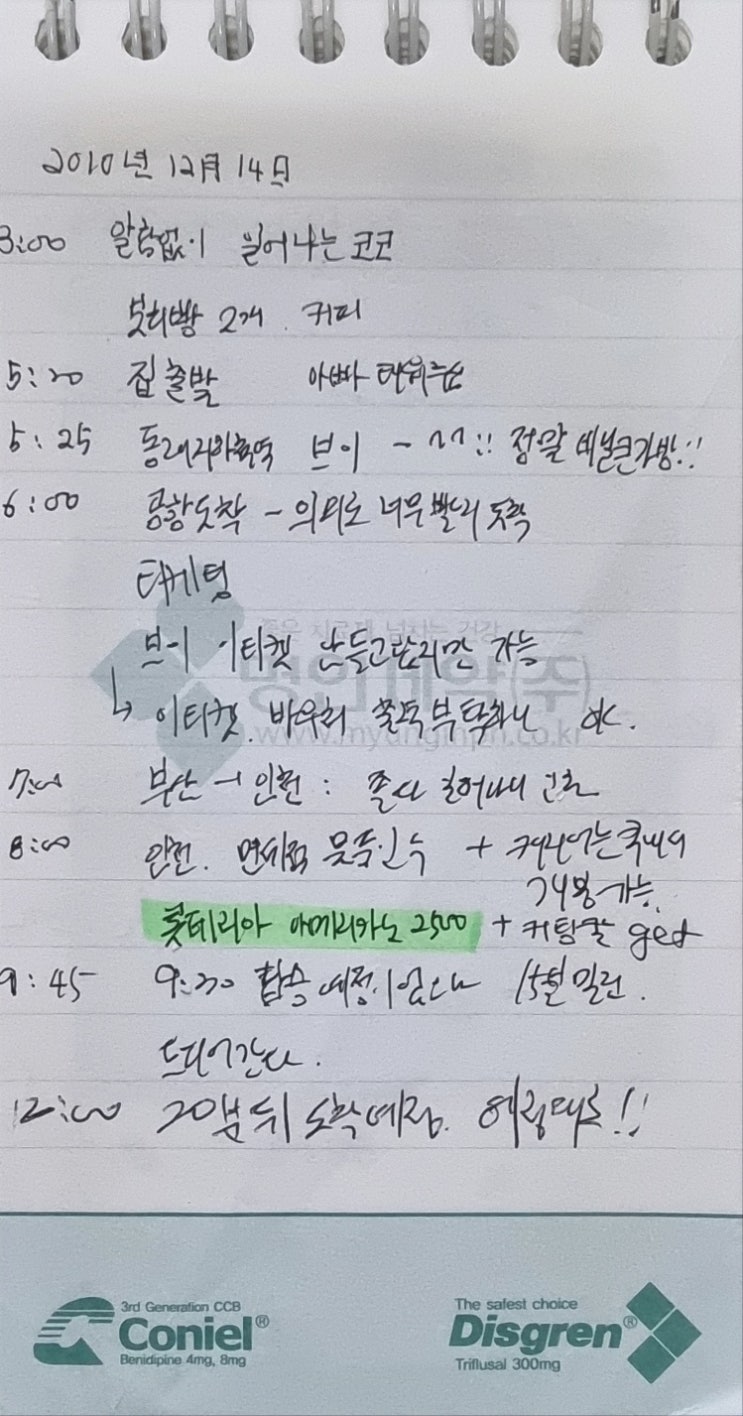 2010년 12月 14日
3:00 알람없이 일어나는 코코
보리빵 2개. 커피
5:20 집 출발 아빠 태워줌
5:25 동래지하철역 브이 - ㅋㅋ!! 정말 네 발큰가방!!
6:00 공항도착 - 의외로 너무 빨리 도착
티케팅
좋은 치료제 넘치는 건강
브이 이티켓 안들고왔지만 가능
명인제약(주)
↳ 이티켓. 바우처 꼭 부탁하니 ok.
www.myunginph.co.kr
7:00 부산 → 인천 : 졸다 일어나니
8:00 인천. 면세점 +
개봉가능.
롯데리아 아메리카노 2500 + get
9:45 9:30 탑승 예정이었으나 15분 밀린.
드디어간다.
12:00 20분 뒤 도착예정. 예정대로!!
3rd Generation CCB
Coniel®
Benidipine 4mg, 8mg
The safest choice
Disgren®
Triflusal 300mg